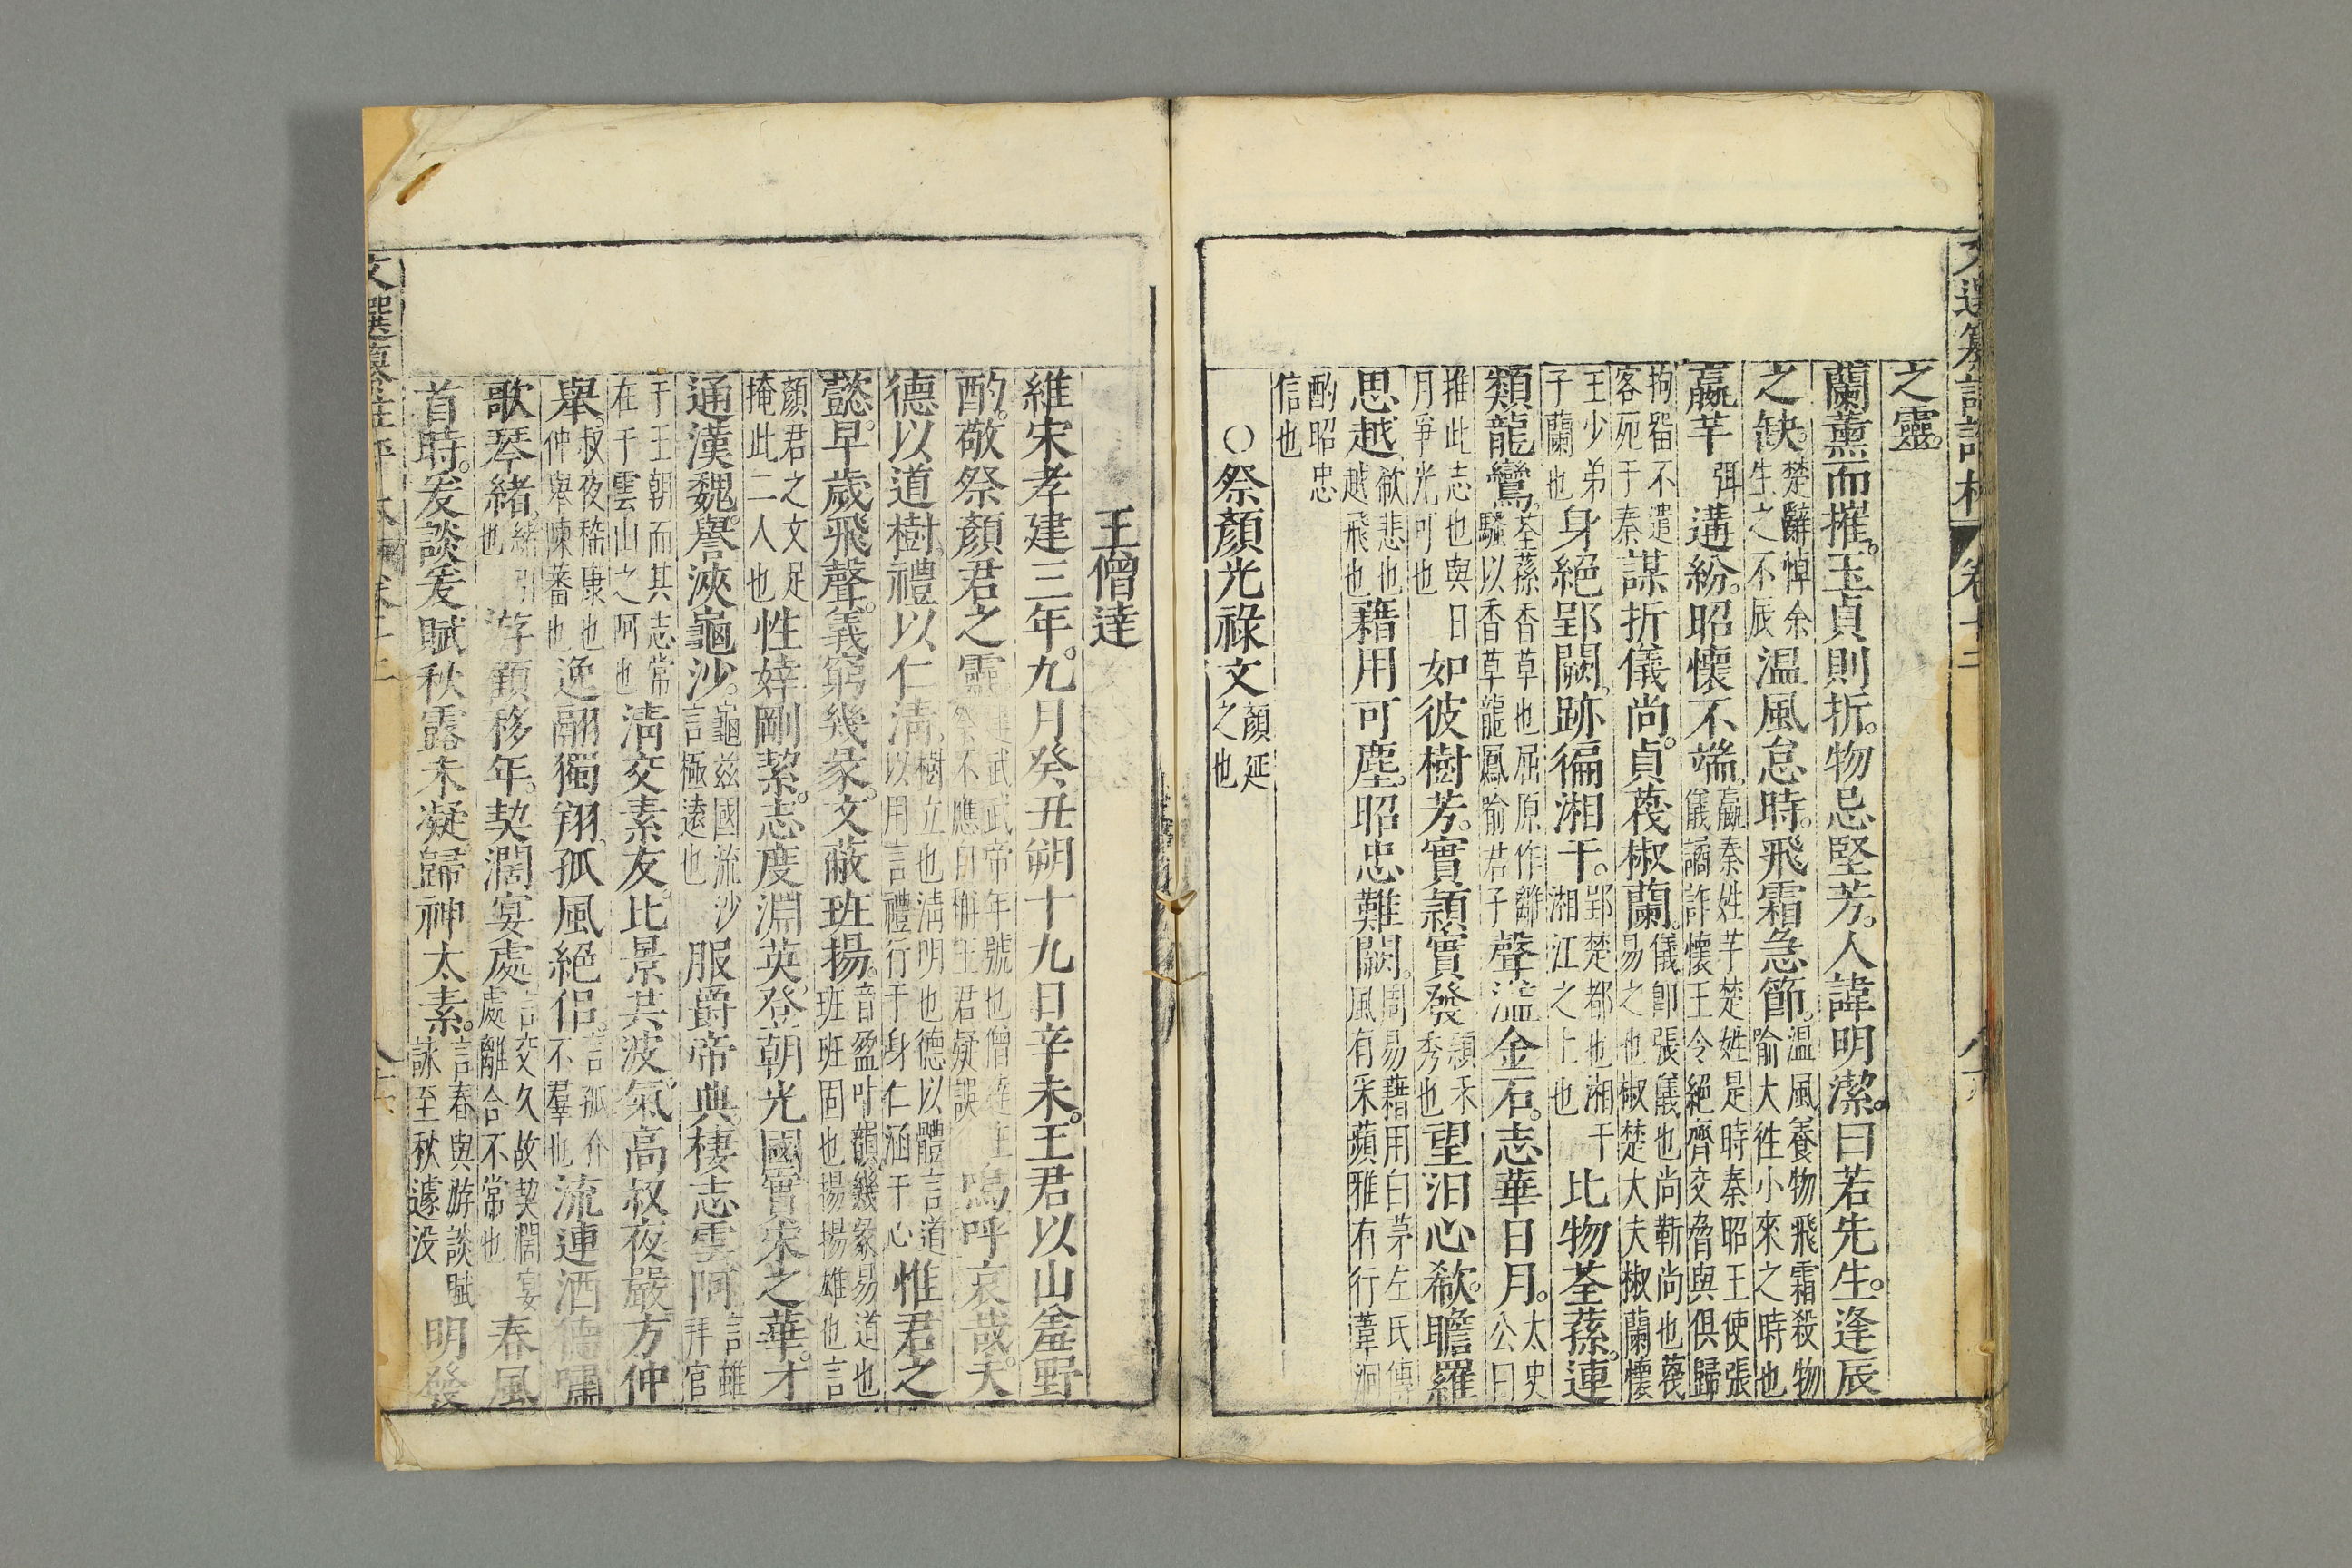 之靈。
蘭薰而摧。玉貞則折。物忌堅芳。人諱明潔。曰若先生。逢辰
之缺。楚辭悼余生之不辰温風怠時。飛霜急節。温風養物飛霜殺物喻大徃小來之時也
嬴芊弭遘紛。昭懷不端。嬴秦姓芊楚姓是時秦昭王使張儀譎詐懷王令絕齊交脅與俱歸
拘畱不遣客死于秦謀折儀尚。貞蔑椒蘭。儀卽張儀也尚靳尚也蔑易之也椒楚大夫椒蘭懷
王少弟子蘭也身絕郢闕。跡徧湘干。郢楚都也湘干湘江之上也比物荃蓀。連
類龍鸞。荃蓀香草也屈原作離騷以香草龍鳳喻君子聲溢金石。志華日月。太史公曰
推此志也與日月爭光可也如彼樹芳。實穎實發穎禾秀也望汨心欷。瞻羅
思越。欷悲也越飛也藉用可塵。昭忠難闕。周易藉用白茅左氏傳風有采蘋雅有行葦泂
酌昭忠信也
○祭顏光祿文顏延之也
王僧達
維宋孝建三年。九月癸丑朔十九日辛未。王君以山羞野
酌。敬祭顏君之靈。建武武帝年號也僧達王祭不應自稱王君疑誤嗚呼哀哉。夫
德以道樹。禮以仁淸。樹立也淸明也德以體言道以用言禮行于身仁涵于心惟君之
懿。早歲飛聲。義窮幾彖。文蔽班揚。音盈叶韻幾彖易道也班班固也揚揚雄也言
顏君之文足掩此二人也性婞剛絜。志度淵英。登朝光國。實宋之華。才
通漢魏。譽浹龜沙。龜兹國流沙言極遠也服爵帝典。棲志雲阿。言雖拜官
于王朝而其志常在于雲山之阿也淸交素友。比景共波。氣高叔夜。嚴方仲
舉。叔夜嵇康也仲舉陳蕃也逸翮獨翔。孤風絕侶。言孤介不羣也流連酒德。嘯
歌琴緒。緒引也游顧移年。契濶宴處。言交久故契濶宴處離合不常也春風
首時。爰談爰賦。秋露未凝。歸神太素。言春與游談賦詠至秋遽没明發
文選纂註評林 卷十二